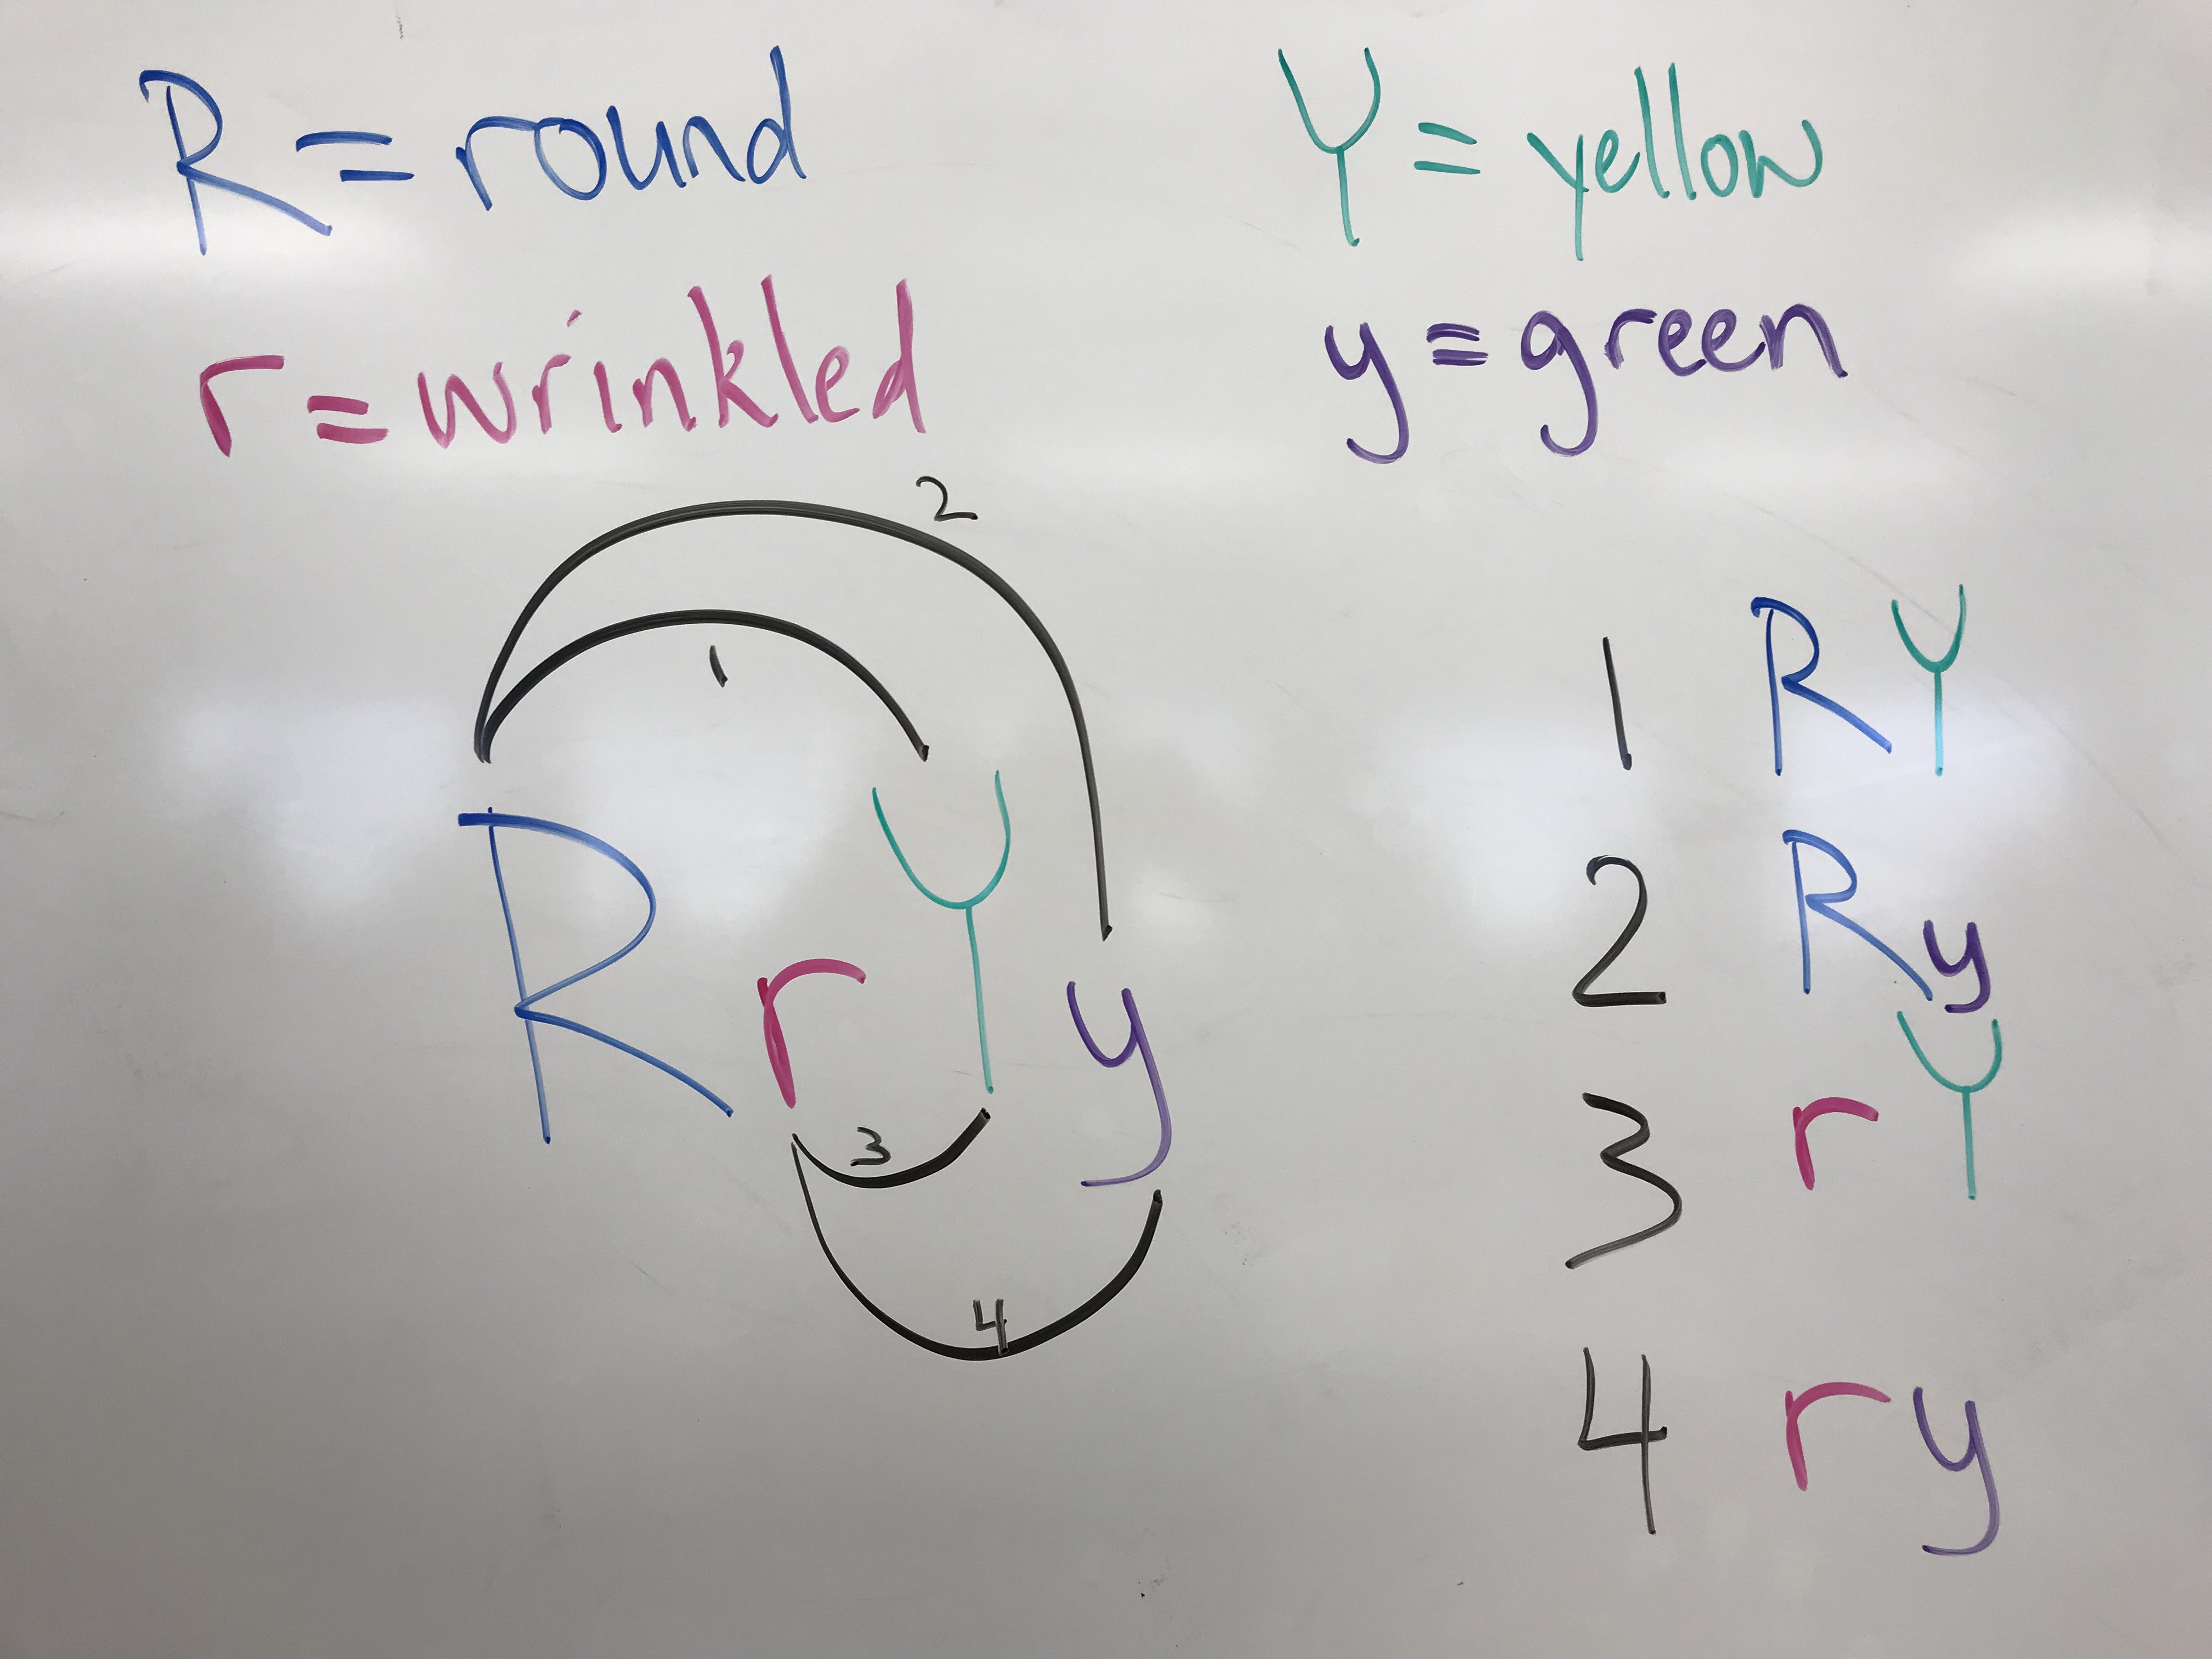 R = round
r = wrinkled
Y = yellow
y = green
2
1
R r Y y
3
4
1 RY
2 Ry
3 rY
4 ry